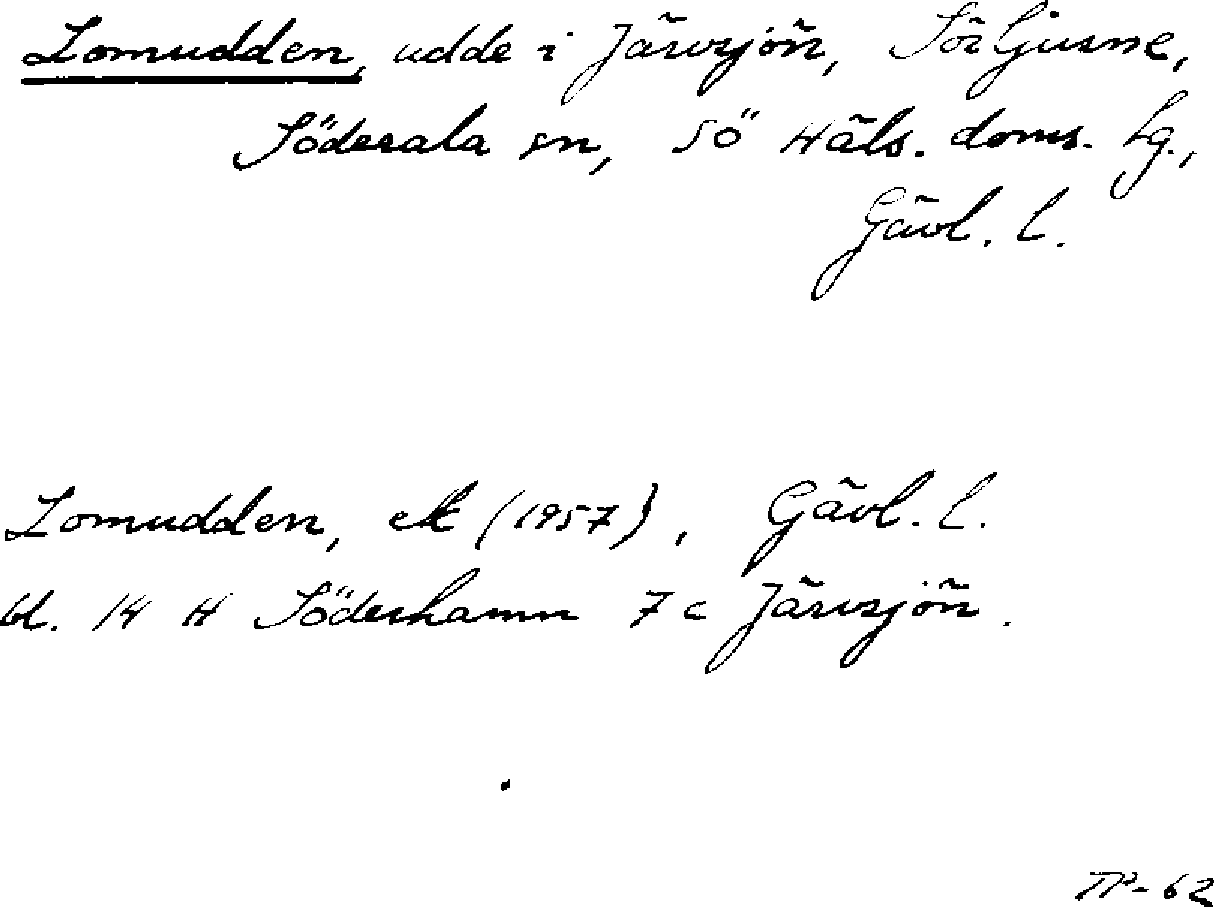 Lomudden, udde i Järvsjön, Sör Ljusne,
Söderala sn, Sö Häls. doms. hg.,
Gävl. l.
Lomudden, ek (1957), Gävl. l.
bl. 14 H Söderhamn 7c Järvsjön.
TP-62